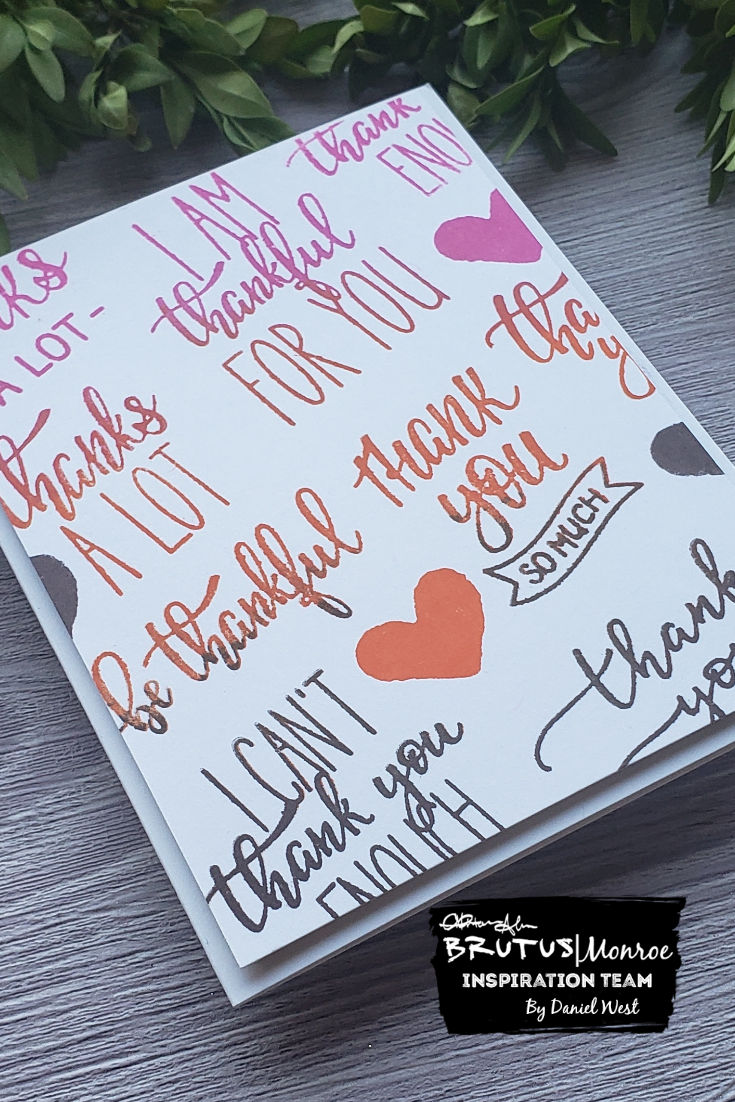 thank
I AM
thankful
FOR YOU
A LOT-
thanks
A LOT
thank
you
SO MUCH
be thankful
I CAN'T
thank you
ENOUGH
thank
BRUTUS|Monroe
INSPIRATION TEAM
By Daniel West